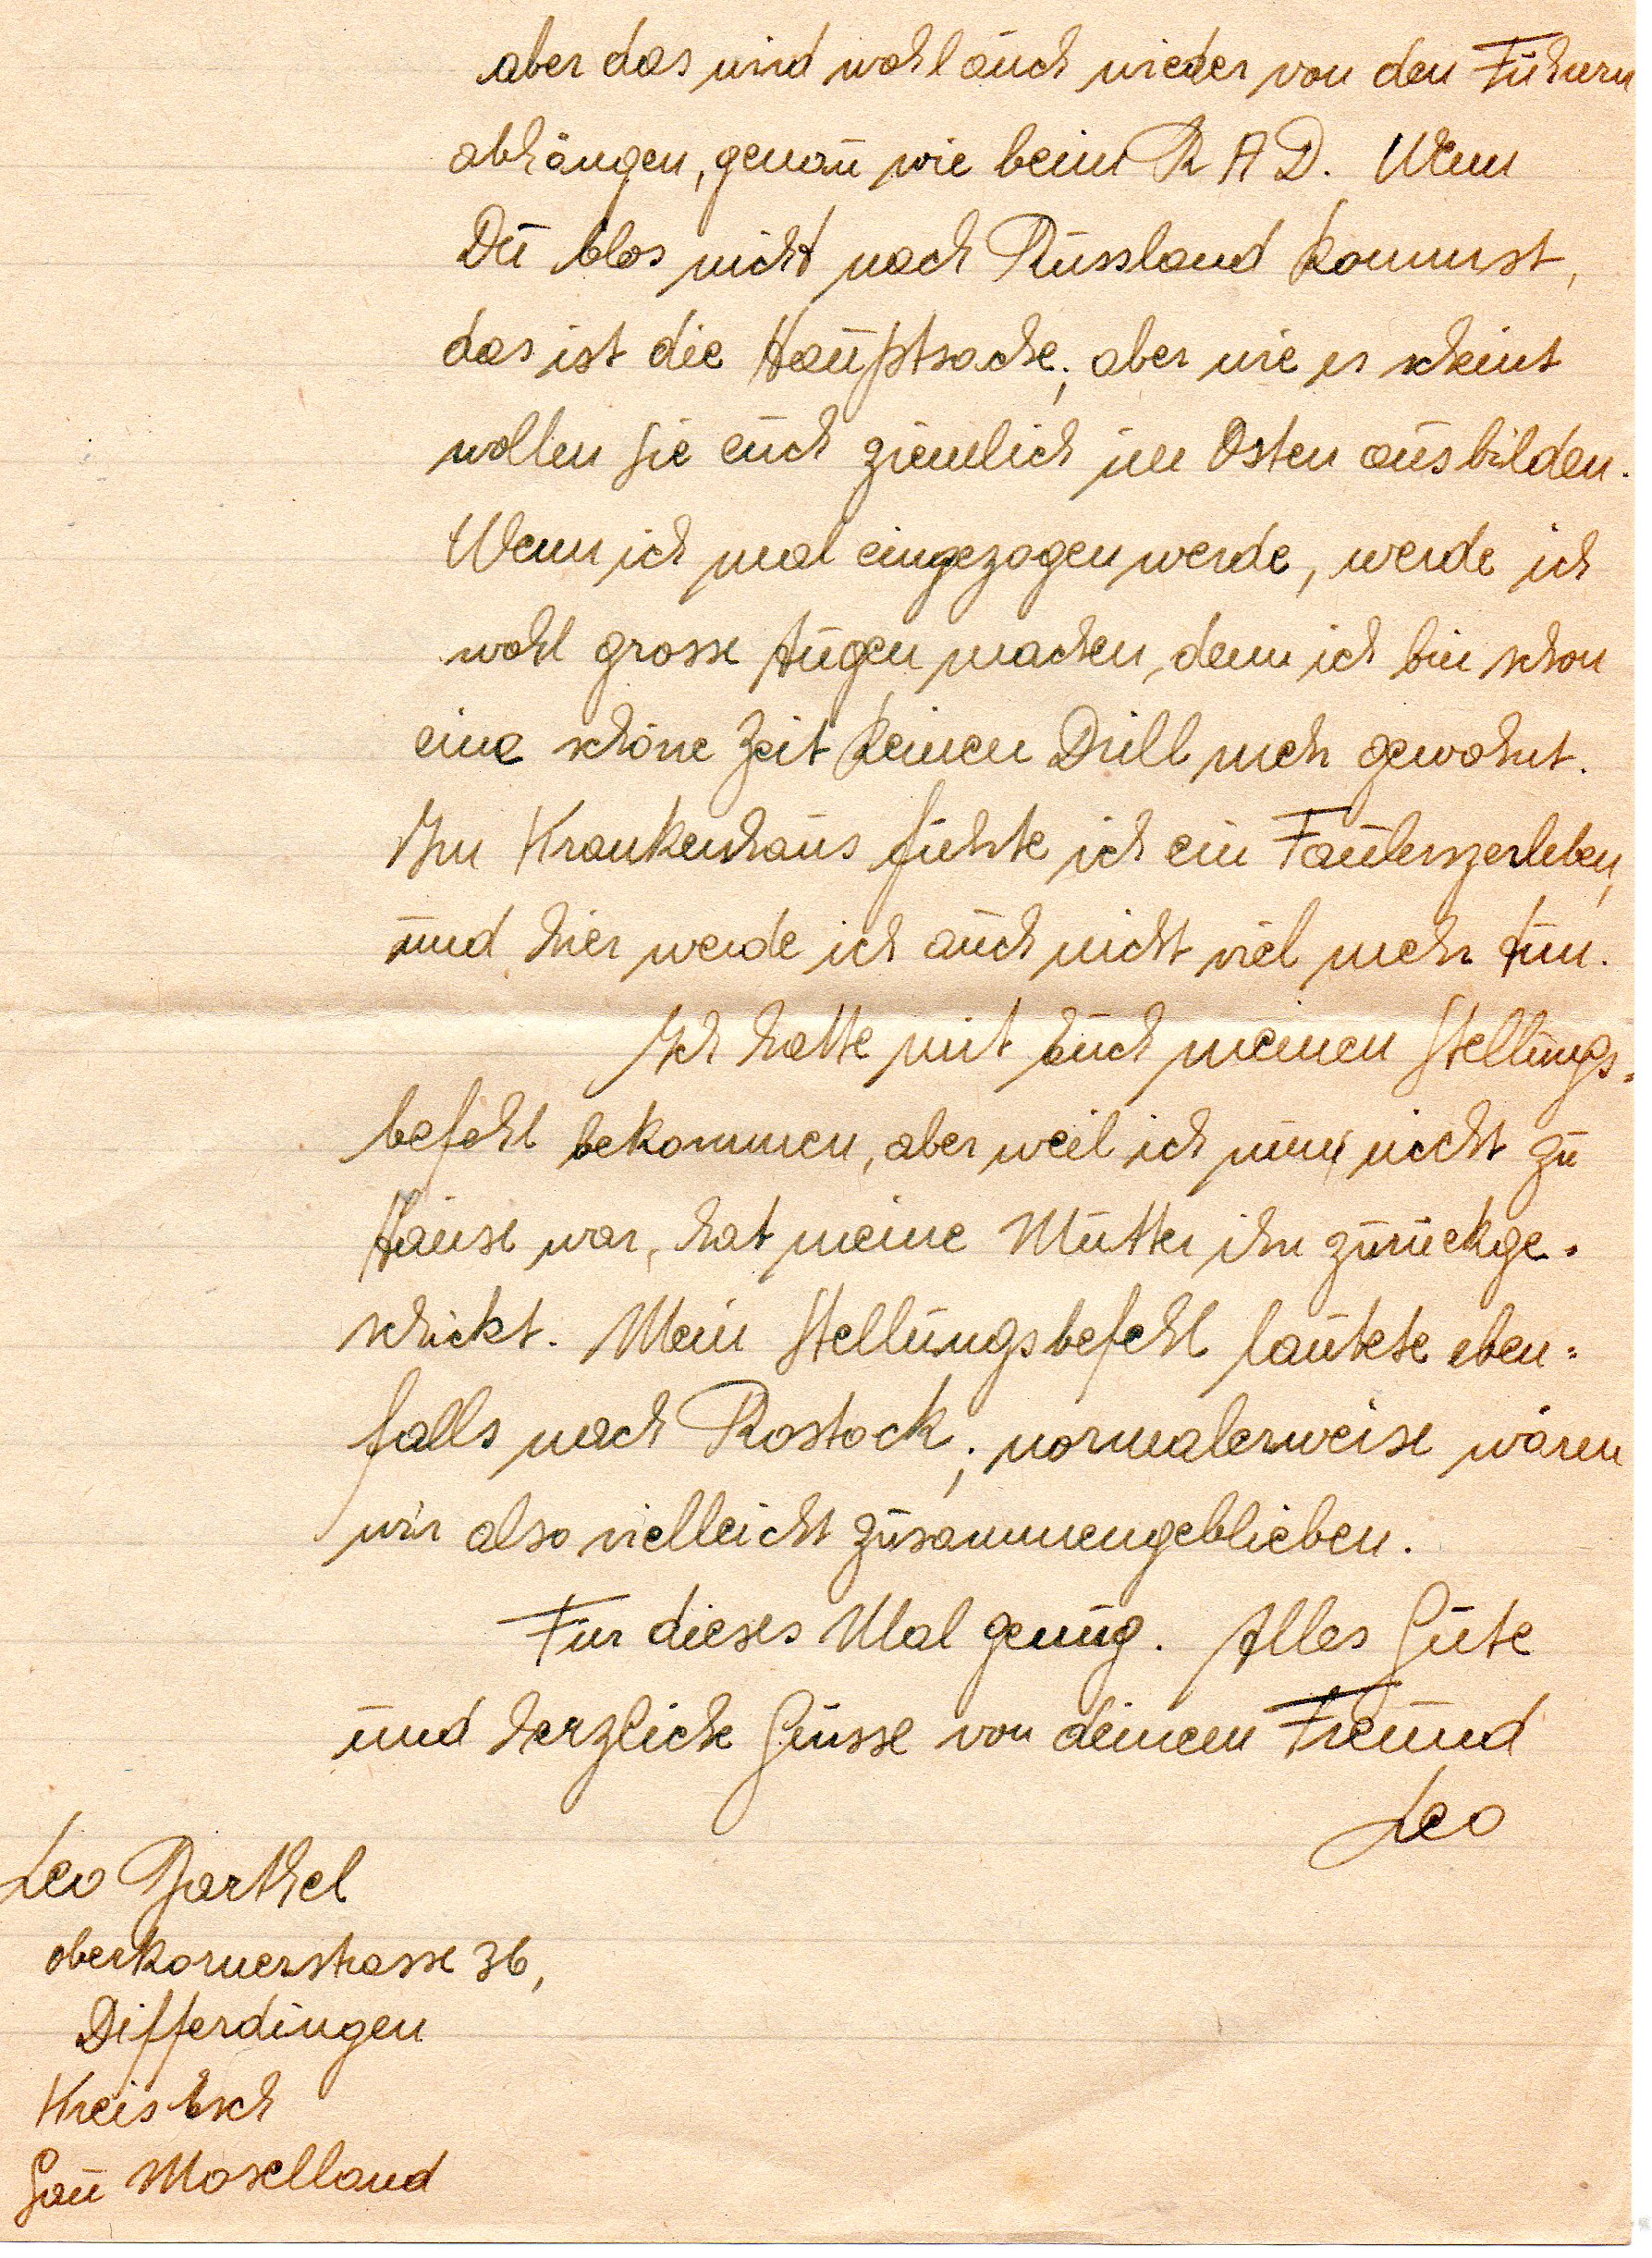 aber das wird wohl auch wieder von den Führern
abhängen, genau wie beim R A D. Wenn
Du blos nicht nach Russland kommst,
das ist die Hauptsache; aber wie es scheint
wollen sie euch ziemlich im Osten ausbilden.
Wenn ich mal eingezogen werde, werde ich
wohl grosse Augen machen, denn ich bin schon
eine schöne Zeit keinen Drill mehr gewohnt.
Im Krankenhaus führte ich ein Faulenzerleben,
und hier werde ich auch nicht viel mehr tun.
Ich hatte mit Euch meinen Stellungs-
befehl bekommen, aber weil ich nun nicht zu
Hause war, hat meine Mutter ihn zurückge-
schickt. Mein Stellungsbefehl lautete eben=
falls nach Rostock; normalerweise wären
wir also vielleicht zusammengeblieben.
Für dieses Mal genug. Alles Gute
und herzliche Grüsse von deinem Freund
Leo
Leo Barthel
Oberkornerstrasse 36,
Differdingen
Kreis Esch
Gau Moselland